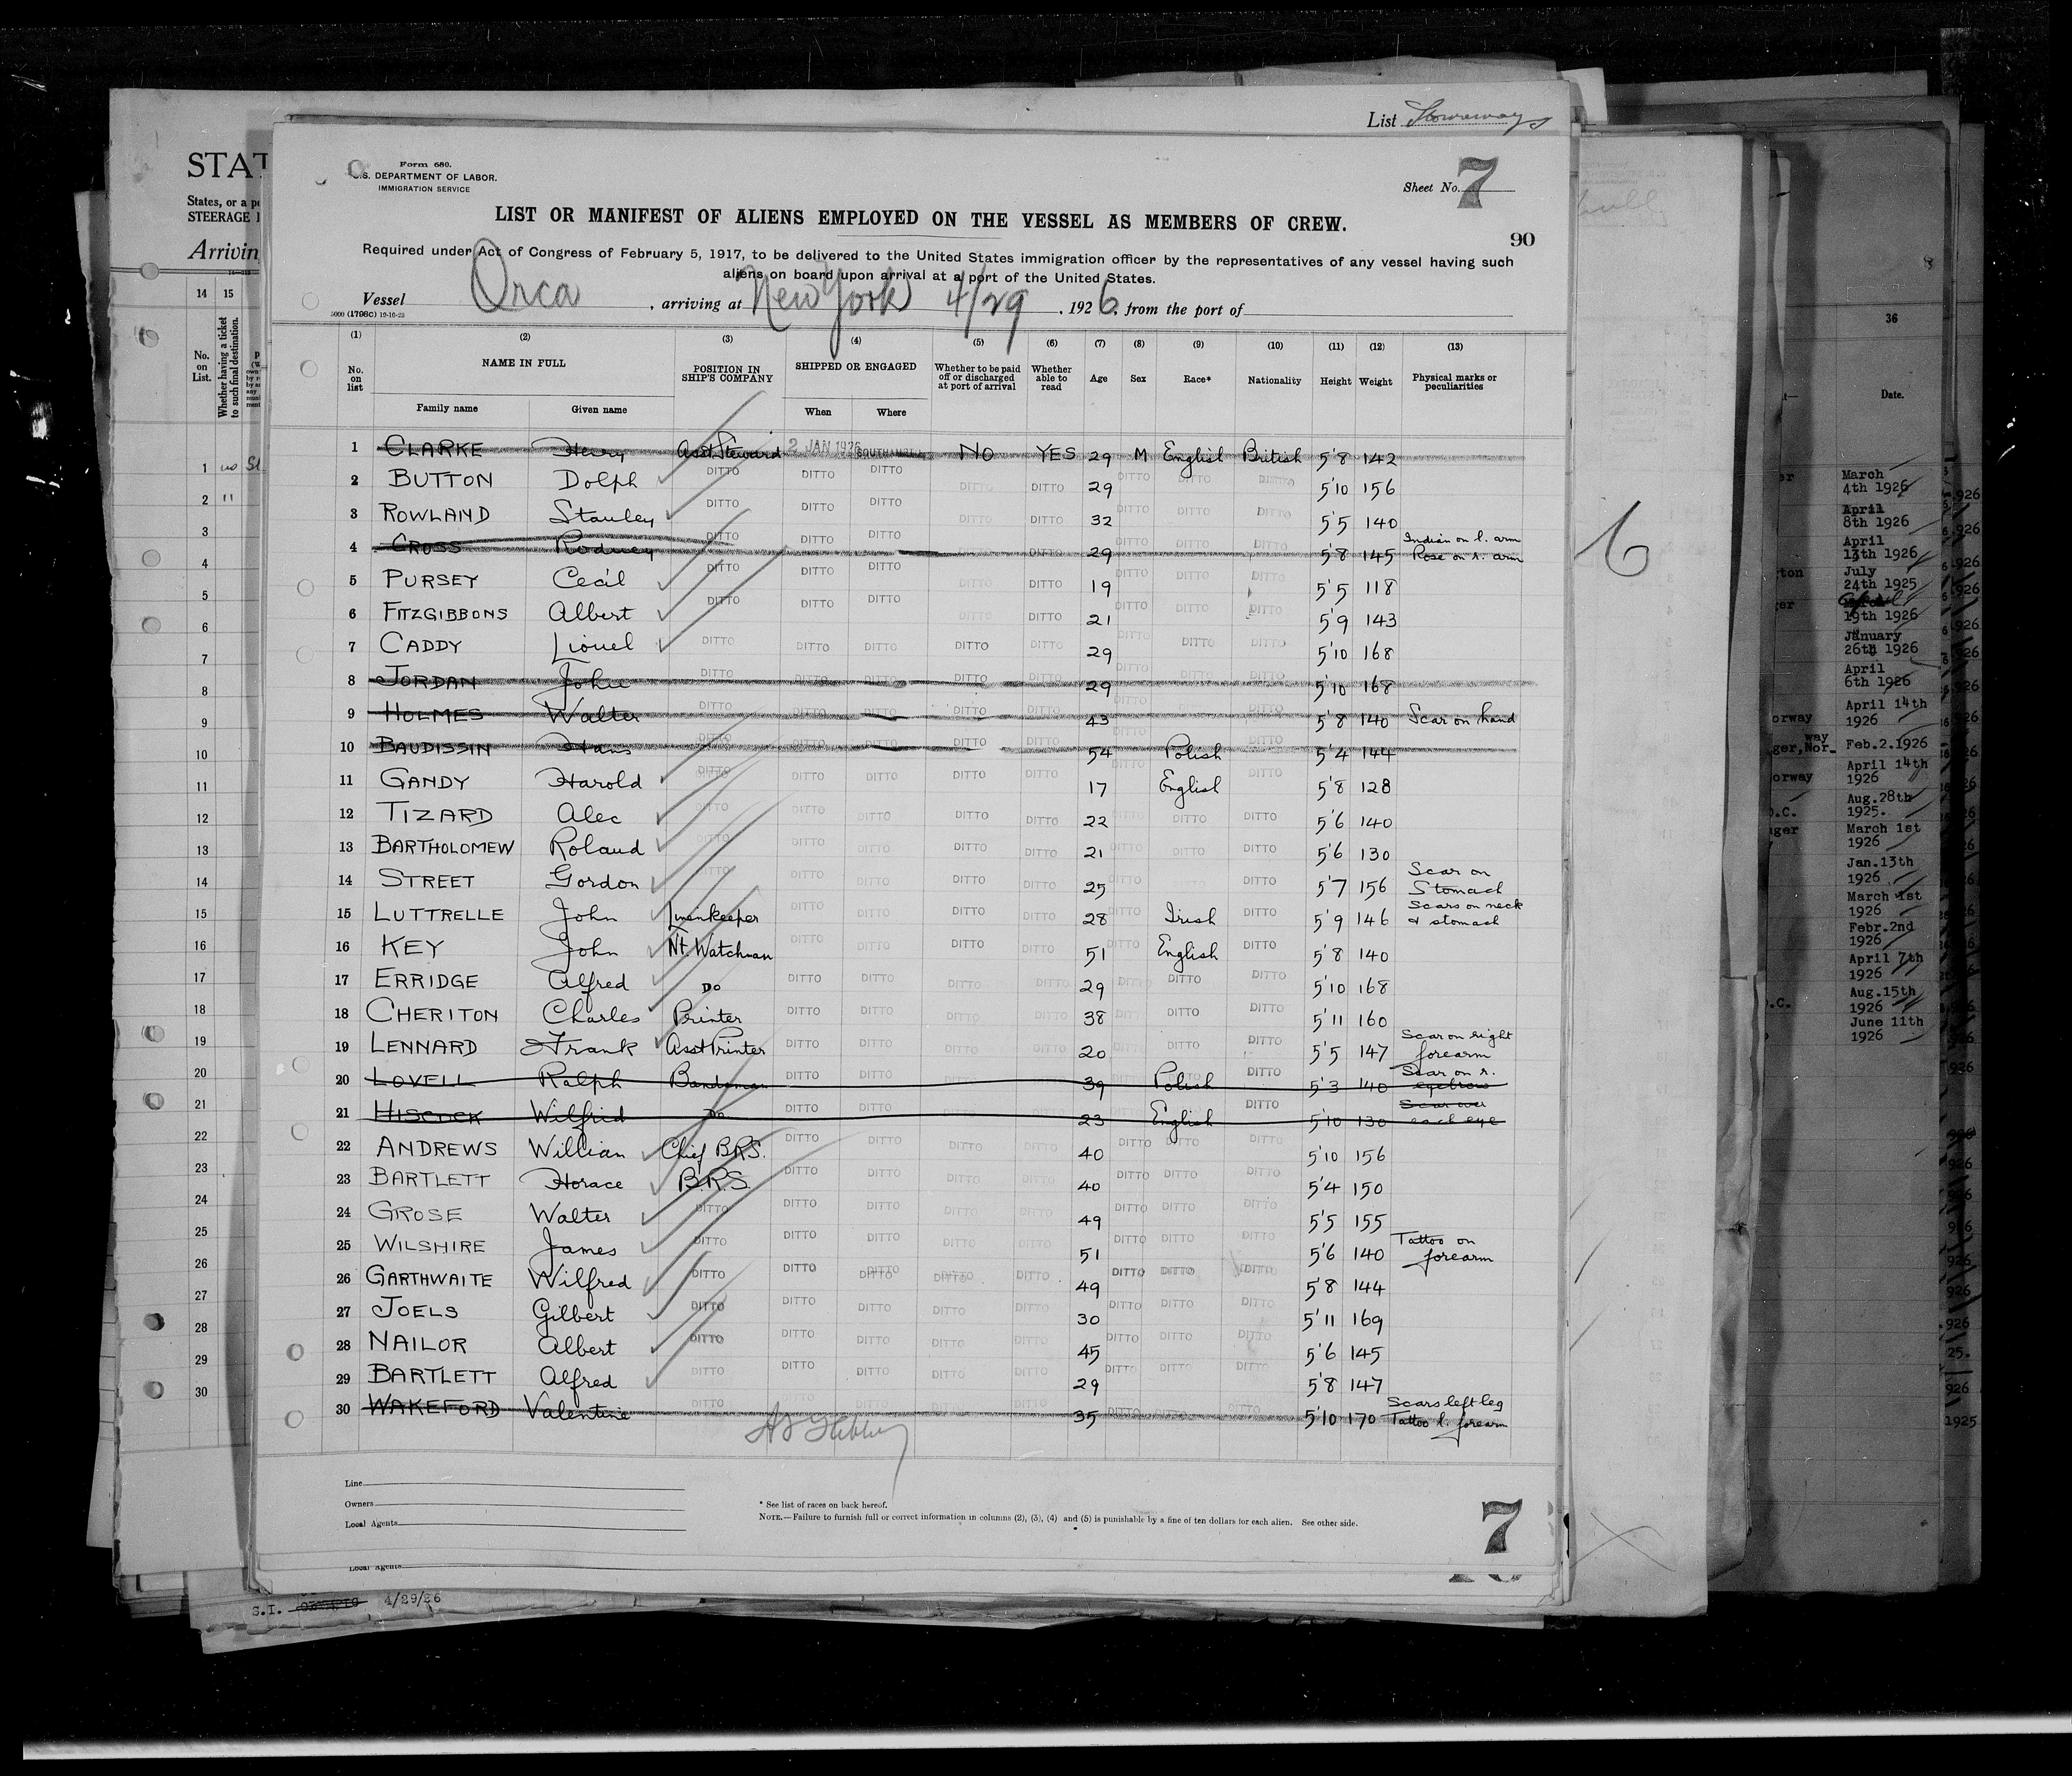 List Stowaways
Form 680.
U.S. DEPARTMENT OF LABOR.
IMMIGRATION SERVICE
Sheet No. 7
LIST OR MANIFEST OF ALIENS EMPLOYED ON THE VESSEL AS MEMBERS OF CREW.
90
Required under Act of Congress of February 5, 1917, to be delivered to the United States immigration officer by the representatives of any vessel having such
aliens on board upon arrival at a port of the United States.
Vessel Orca, arriving at New York 4/29, 1926, from the port of
(1) (2) (3) (4) (5) (6) (7) (8) (9) (10) (11) (12) (13)
No. on list NAME IN FULL Family name Given name POSITION IN SHIP'S COMPANY SHIPPED OR ENGAGED When Where Whether to be paid off or discharged at port of arrival Whether able to read Age Sex Race* Nationality Height Weight Physical marks or peculiarities
1 CLARKE Henry Asst Steward 2 JAN 1926 SOUTHAMPTON NO YES 29 M English British 5'8 142
2 BUTTON Dolph DITTO DITTO DITTO DITTO DITTO 29 DITTO DITTO DITTO 5'10 156
3 ROWLAND Stanley DITTO DITTO DITTO DITTO DITTO 32 DITTO DITTO DITTO 5'5 140
4 CROSS Rodney DITTO DITTO DITTO DITTO 29 DITTO DITTO DITTO 5'8 145 Indian on l. arm Rose on r. arm
5 PURSEY Cecil DITTO DITTO DITTO DITTO DITTO 19 DITTO DITTO DITTO 5'5 118
6 FITZGIBBONS Albert DITTO DITTO DITTO DITTO DITTO 21 DITTO DITTO DITTO 5'9 143
7 CADDY Lionel DITTO DITTO DITTO DITTO DITTO 29 DITTO DITTO DITTO 5'10 168
8 JORDAN John DITTO DITTO DITTO DITTO DITTO 29 DITTO DITTO DITTO 5'10 168
9 HOLMES Walter DITTO DITTO DITTO DITTO DITTO 43 DITTO DITTO 5'8 140 Scar on hand
10 BAUDISSIN Hans DITTO DITTO DITTO DITTO DITTO 54 DITTO Polish DITTO 5'4 144
11 GANDY Harold DITTO DITTO DITTO DITTO DITTO 17 DITTO English DITTO 5'8 128
12 TIZARD Alec DITTO DITTO DITTO DITTO DITTO 22 DITTO DITTO DITTO 5'6 140
13 BARTHOLOMEW Roland DITTO DITTO DITTO DITTO DITTO 21 DITTO DITTO DITTO 5'6 130
14 STREET Gordon DITTO DITTO DITTO DITTO DITTO 25 DITTO DITTO 5'7 156 Scar on Stomach
15 LUTTRELLE John Linenkeeper DITTO DITTO DITTO DITTO 28 DITTO Irish DITTO 5'9 146 Scars on neck & stomach
16 KEY John Nt. Watchman DITTO DITTO DITTO DITTO 51 DITTO English DITTO 5'8 140
17 ERRIDGE Alfred Do DITTO DITTO DITTO DITTO 29 DITTO DITTO DITTO 5'10 168
18 CHERITON Charles Printer DITTO DITTO DITTO DITTO 38 DITTO DITTO DITTO 5'11 160
19 LENNARD Frank Asst Printer DITTO DITTO DITTO DITTO 20 DITTO DITTO DITTO 5'5 147 Scar on right forearm
20 LOVELL Ralph Bandsman DITTO DITTO DITTO DITTO 39 Polish DITTO 5'3 140 Scar on r. eyebrow
21 HISCOCK Wilfrid Do DITTO DITTO DITTO DITTO 23 English DITTO 5'10 130 Scar over each eye
22 ANDREWS William Chief B.R.S. DITTO DITTO DITTO DITTO 40 DITTO DITTO DITTO 5'10 156
23 BARTLETT Horace B.R.S. DITTO DITTO DITTO DITTO 40 DITTO DITTO DITTO 5'4 150
24 GROSE Walter DITTO DITTO DITTO DITTO DITTO 49 DITTO DITTO DITTO 5'5 155
25 WILSHIRE James DITTO DITTO DITTO DITTO DITTO 51 DITTO DITTO DITTO 5'6 140 Tattoo on forearm
26 GARTHWAITE Wilfred DITTO DITTO DITTO DITTO DITTO 49 DITTO DITTO DITTO 5'8 144
27 JOELS Gilbert DITTO DITTO DITTO DITTO DITTO 30 DITTO DITTO DITTO 5'11 169
28 NAILOR Albert DITTO DITTO DITTO DITTO DITTO 45 DITTO DITTO DITTO 5'6 145
29 BARTLETT Alfred DITTO DITTO DITTO DITTO DITTO 29 DITTO DITTO DITTO 5'8 147
30 WAKEFORD Valentine DITTO DITTO DITTO DITTO DITTO 35 DITTO DITTO DITTO 5'10 170 Scars left leg Tattoo l. forearm
Line
Owners
Local Agents
* See list of races on back hereof.
NOTE.—Failure to furnish full or correct information in columns (2), (3), (4) and (5) is punishable by a fine of ten dollars for each alien. See other side.
7
Local Agents
S.I. 4/29/26
STAT
States, or a
STEERAGE
Arrivin
14 15
No. on List.
Whether having a ticket to such final destination.
1 no
2 "
3
4
5
6
7
8
9
10
11
12
13
14
15
16
17
18
19
20
21
22
23
24
25
26
27
28
29
30
6
36
Date.
March 4th 1926
April 8th 1926
April 13th 1926
July 24th 1925
19th 1926
January 26th 1926
April 6th 1926
April 14th 1926
Feb.2.1926
April 14th 1926
Aug.28th 1925.
March 1st 1926
Jan.13th 1926
March 1st 1926
Febr.2nd 1926
April 7th 1926
Aug.15th 1926
June 11th 1926